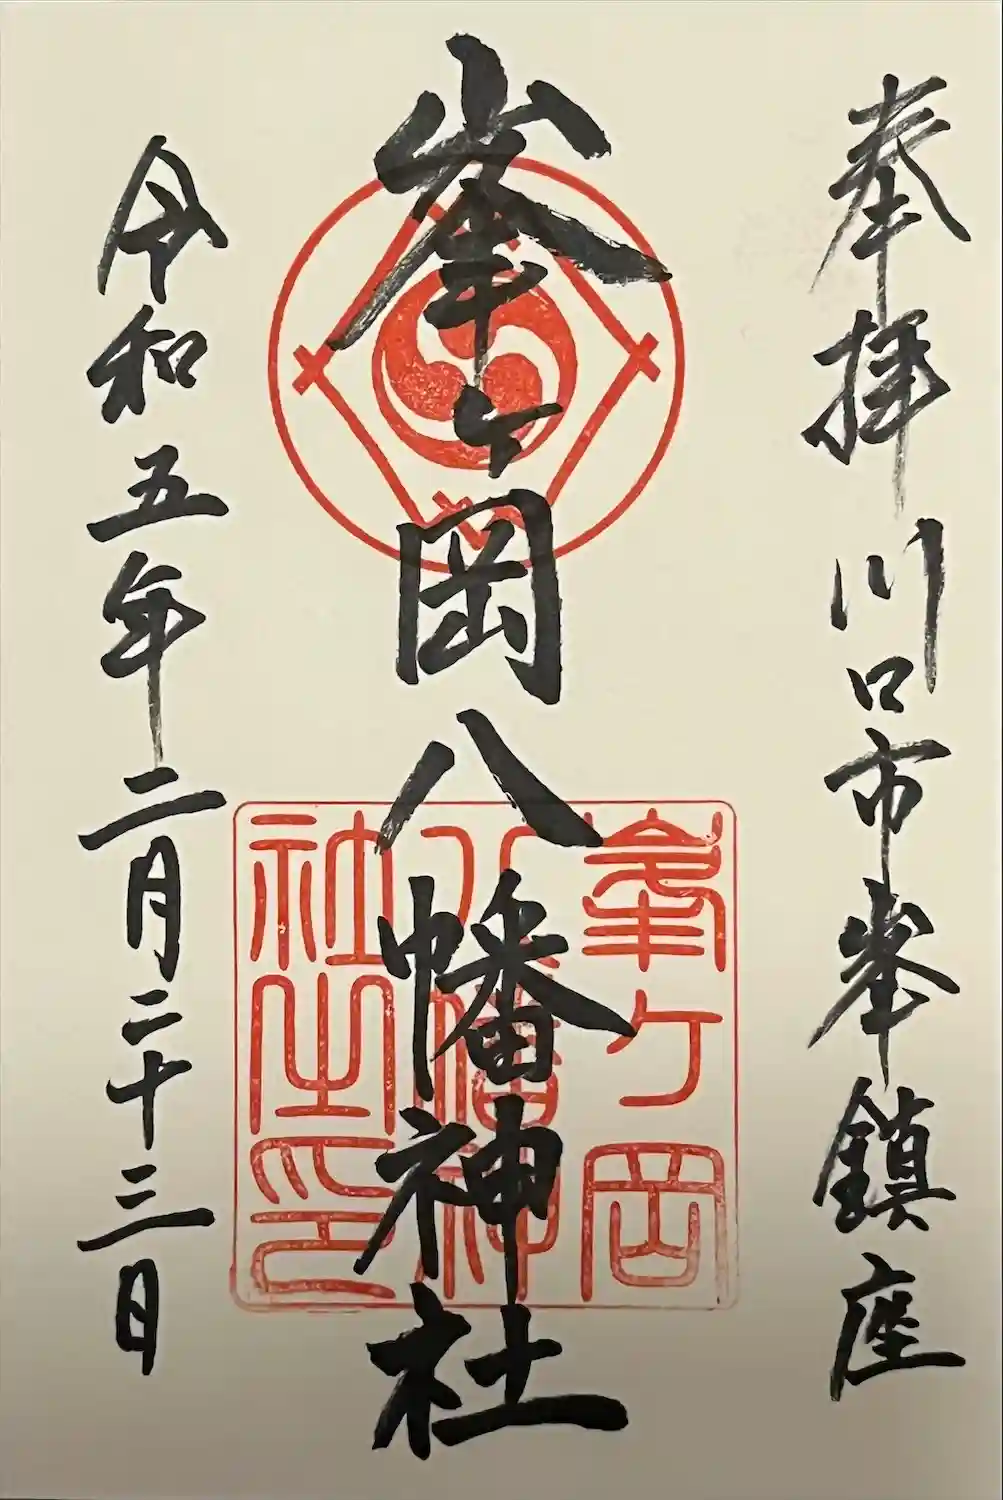 奉拝 川口市峯鎮座
峯ヶ岡八幡神社
峯ヶ岡
八幡神
社之印
令和五年二月二十三日